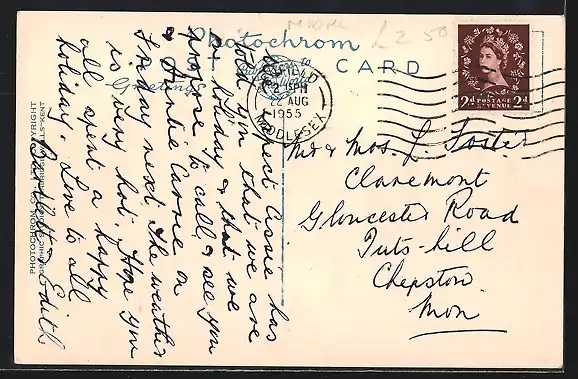 MIDDX
£2.50
Photochrom
POST CARD
Greetings
ENFIELD
2 15PM
22 AUG
1955
MIDDLESEX
2d POSTAGE 2d
REVENUE
expect Cissie has
told you that we are
on holiday & that we
hope to call & see you
& Auntie Carrie on
Friday next. The weather
is very hot. Hope you
all spent a happy
holiday. Love to all
Edith
Mr & Mrs. L. Foster
Claremont
Gloucester Road
Tuts-hill
Chepstow.
Mon
COPYRIGHT
PHOTOCHROM CO